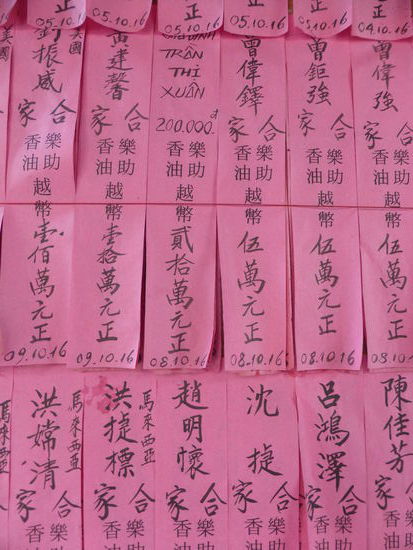 正
04.10.16
正
05.10.16
正
05.10.16
正
05.10.16
正
05.10.16
曾偉強
合家
樂助
香油
越幣
伍萬元正
08.10.16
曾鉅強
合家
樂助
香油
越幣
伍萬元正
08.10.16
曾偉鐸
合家
樂助
香油
越幣
伍萬元正
08.10.16
TRẦN
THỊ
XUÂN
200.000.đ
樂助
香油
越幣
貳拾萬元正
08.10.16
建馨
合家
樂助
香油
越幣
壹拾萬元正
09.10.16
美國
振威
合家
樂助
香油
越幣
壹佰萬元正
09.10.16
陳佳芳
合家
樂助
香油
呂鴻澤
合家
樂助
香油
沈捷
合家
樂助
香油
趙明懷
合家
樂助
香油
馬來西亞
洪捷標
合家
樂助
香油
馬來西亞
洪嫦清
合家
樂助
香油
馬來西亞